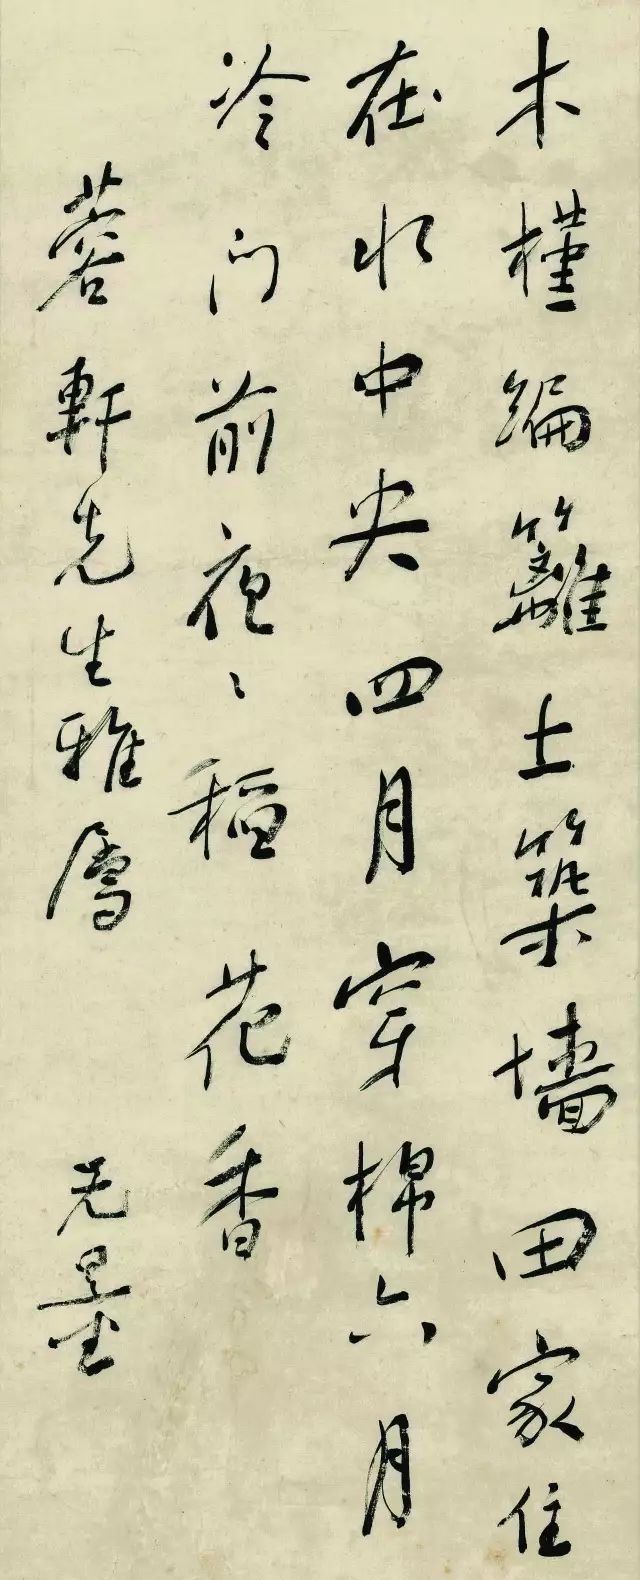 木槿编籬土築墙田家住
在水中央四月穿棉六月
冷门前夜〻稻花香
蓉軒先生雅屬 无量